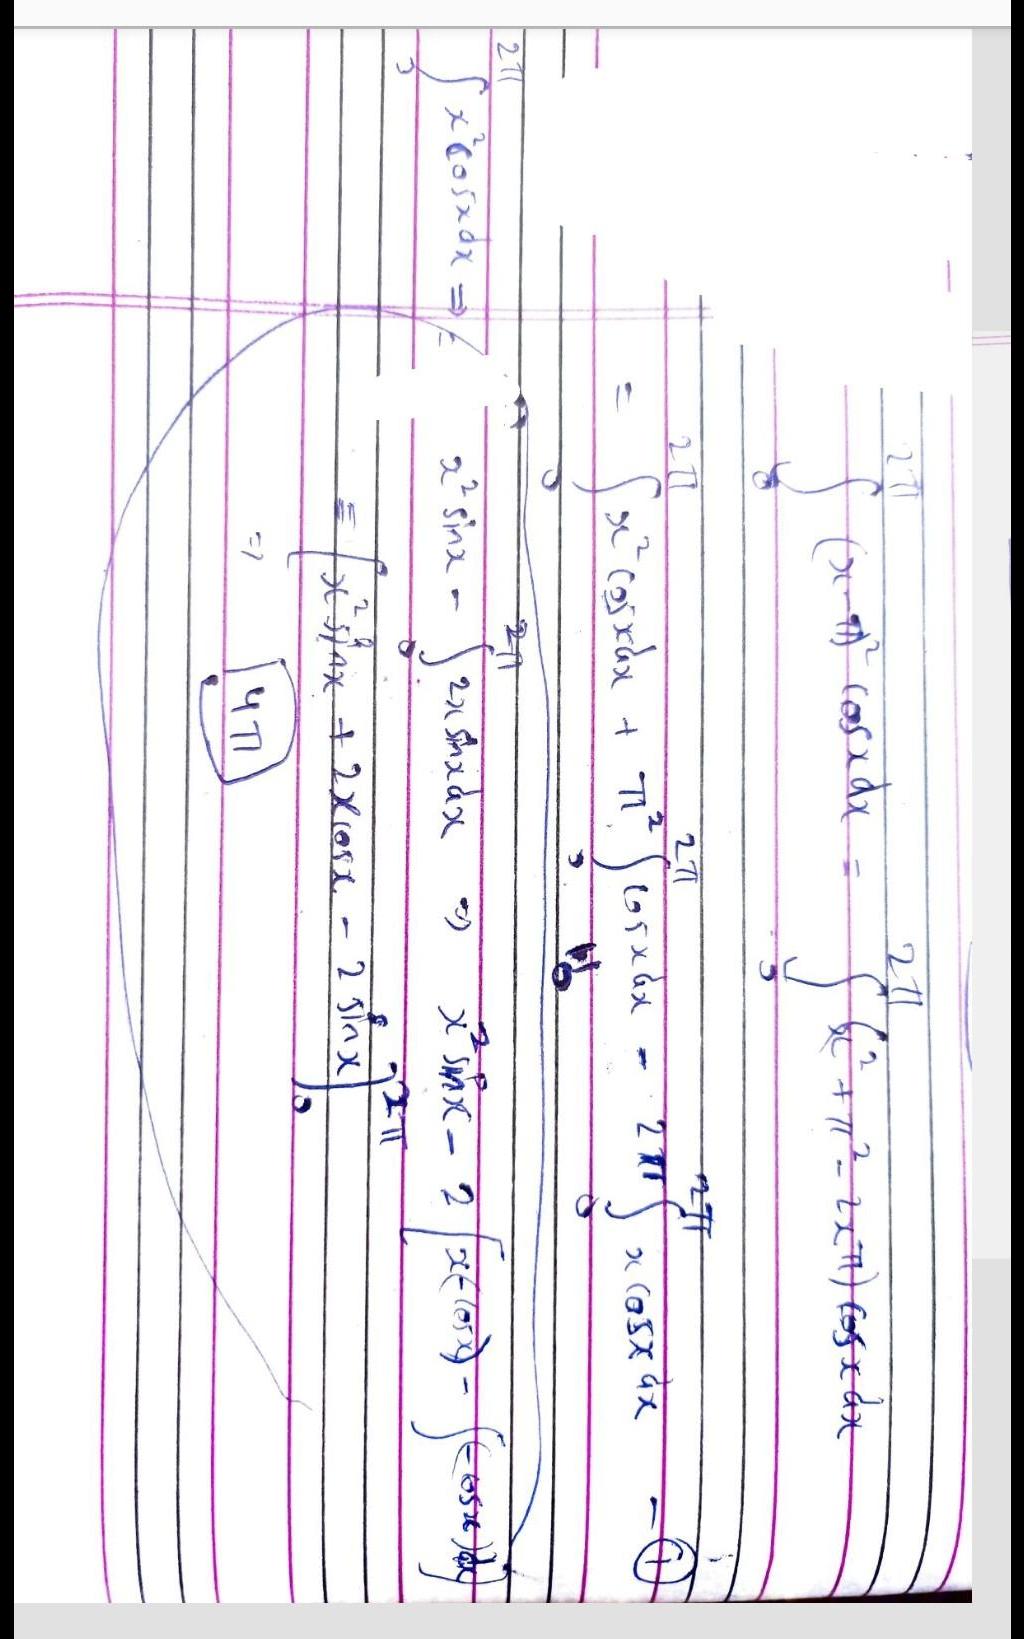 ∫₀^{2π} (x-π)² cosx dx = ∫₀^{2π} (x² + π² - 2xπ) cosx dx
= ∫₀^{2π} x² cosx dx + π² ∫₀^{2π} cosx dx - 2π ∫₀^{2π} x cosx dx - ①
0
∫₀^{2π} x² cosx dx ⇒ = x² sinx - ∫₀^{2π} 2x sinx dx ⇒ x² sinx - 2[x(-cosx) - ∫(-cosx)dx]
= [x² sinx + 2x cosx - 2 sinx]₀^{2π}
⇒ 4π